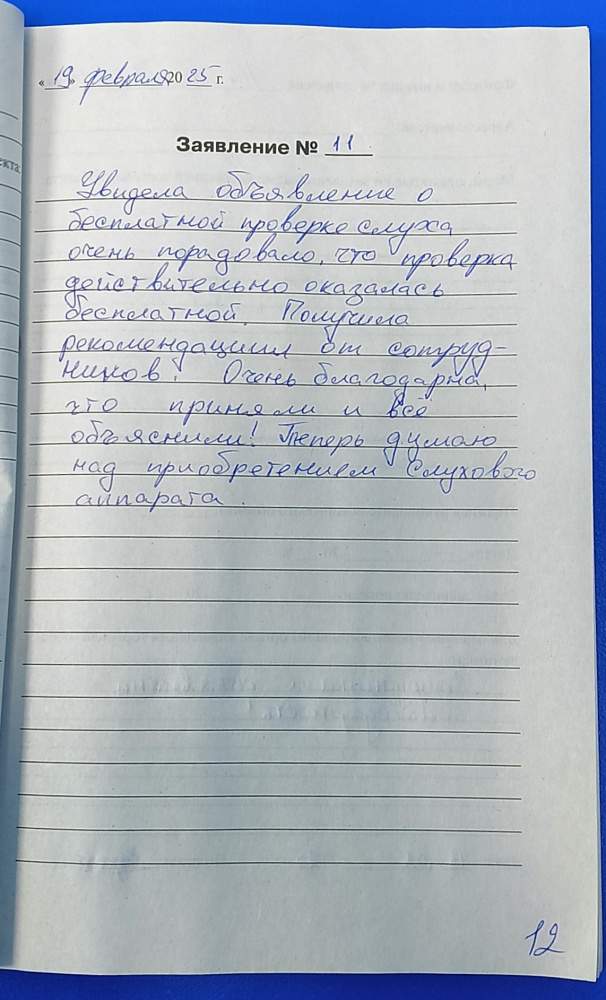 «19» февраля 2025 г.
Заявление № 11
Увидела объявление о
бесплатной проверке слуха,
очень порадовало, что проверка
действительно оказалась
бесплатной. Получила
рекомендации от сотруд-
ников. Очень благодарна,
что приняли и всё
объяснили! Теперь думаю
над приобретением слухового
аппарата.
12